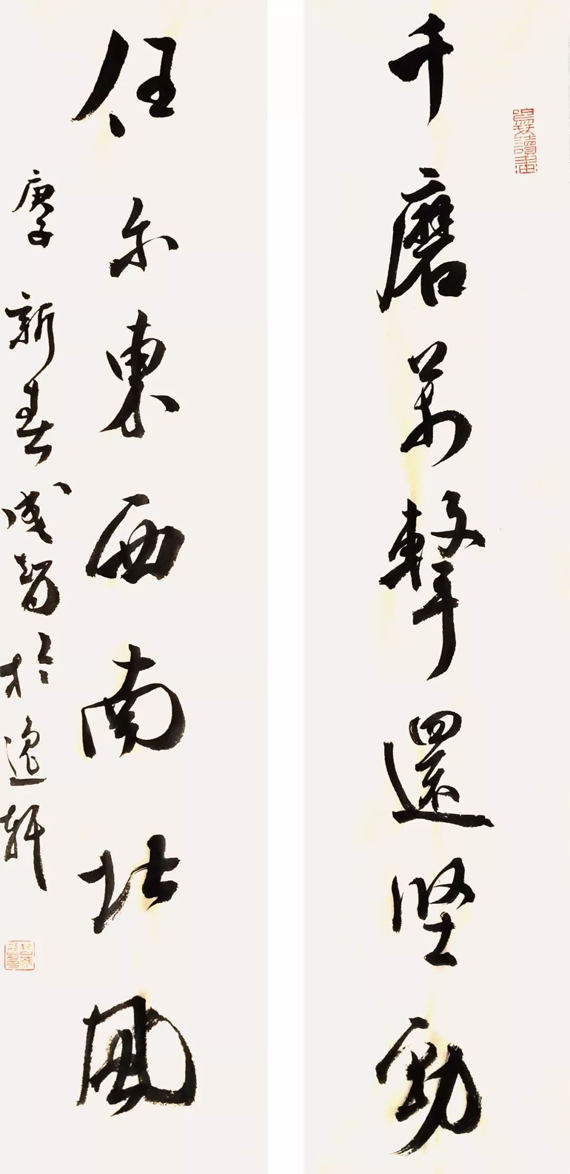 千磨萬擊還堅勁
任尔東西南北風
庚子新春成智於逸軒